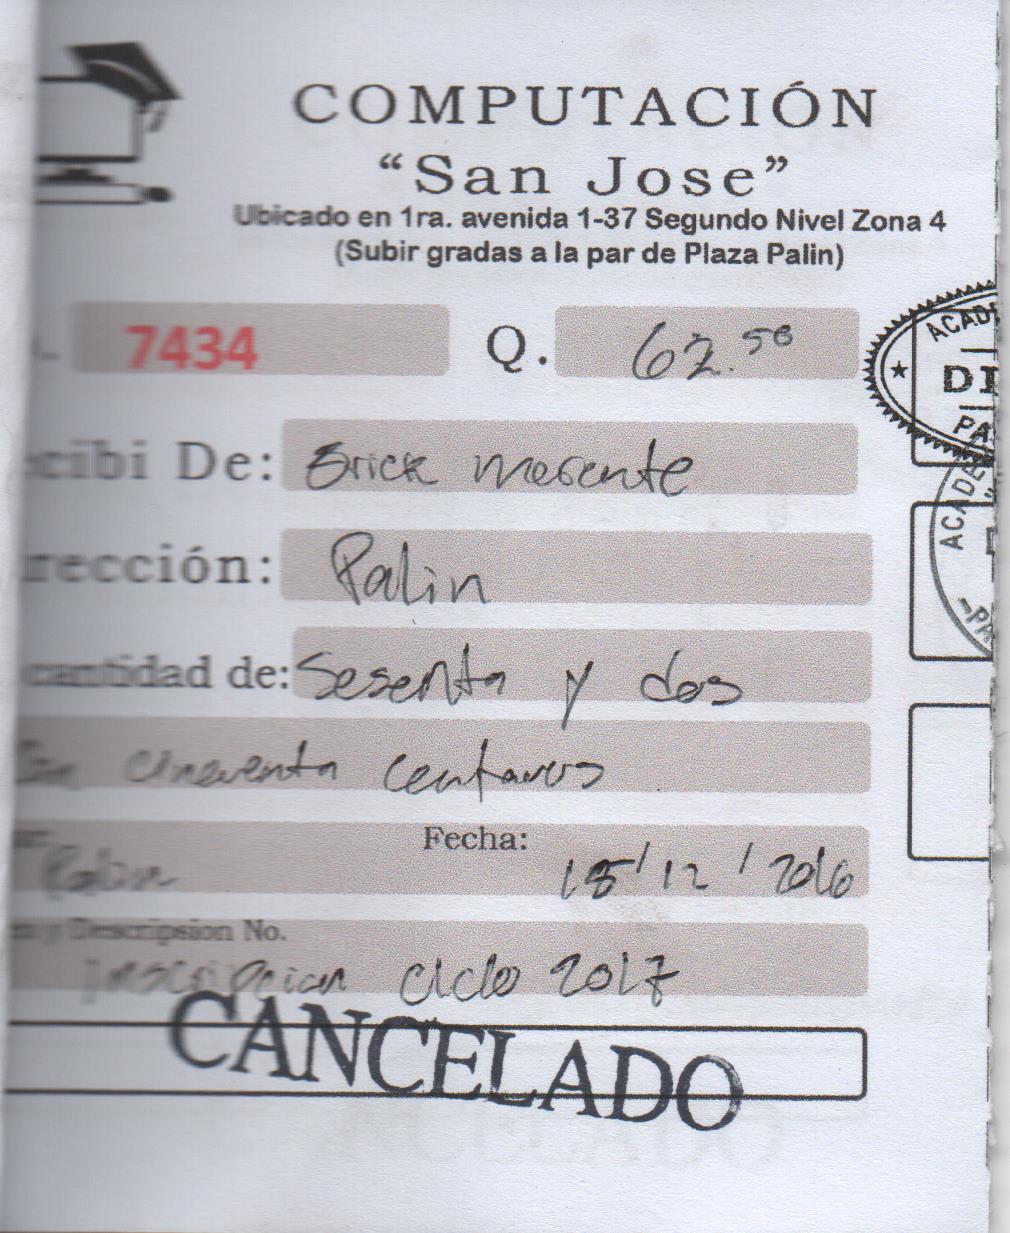 COMPUTACIÓN
“San Jose”
Ubicado en 1ra. avenida 1-37 Segundo Nivel Zona 4
(Subir gradas a la par de Plaza Palin)
7434 Q. 62.50
cibi De: Erick
rección: Palin
cantidad de: Sesenta y dos
centavos
Fecha:
Palin 15/12/2016
y Descripsion No.
Inscripcion Ciclo 2017
CANCELADO
ACAD
DI
PA
ACADE
PA